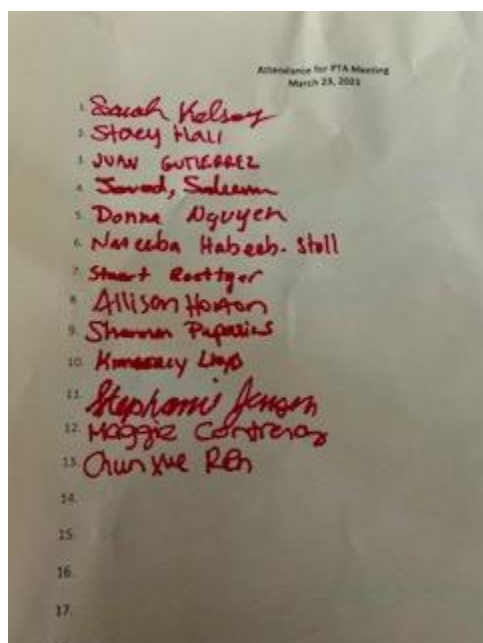 Attendance for PTA Meeting
March 23, 2023
1. Sarah Kelsey
2. Stacy Hall
3. JUAN GUTIERREZ
4. Javed, Saleem
5. Donna Nguyen
6. Naseeba Habeeb-Stoll
7. Stuart Roettger
8. Allison Horton
9. Shannon
10. Kimberly
11. Stephanie Jensen
12. Maggie Contreras
13. Chunxue Ren
14.
15.
16.
17.